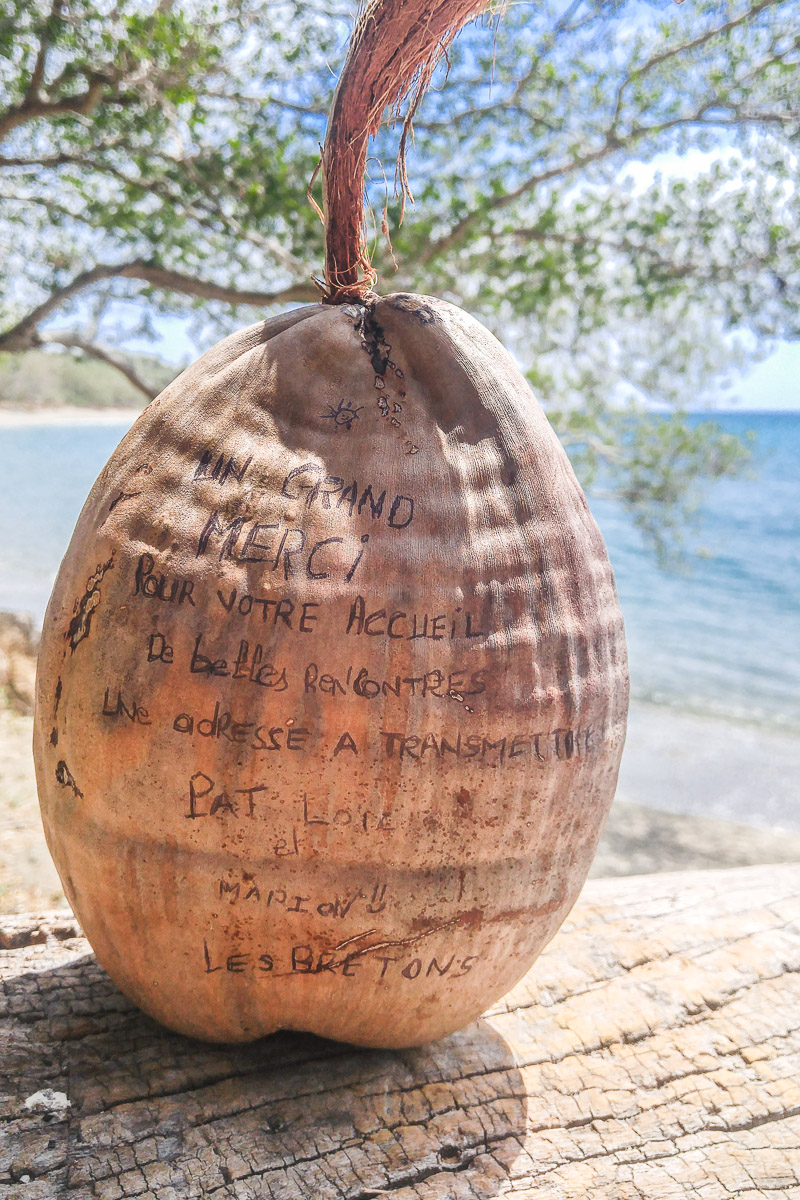 UN GRAND
MERCi
POUR VOTRE ACCUEiL
De belles RENCONTRES
UNe adRESSE A TRANSMETTRE
PAT LOIC
et
MARION !!
LES BRETONS